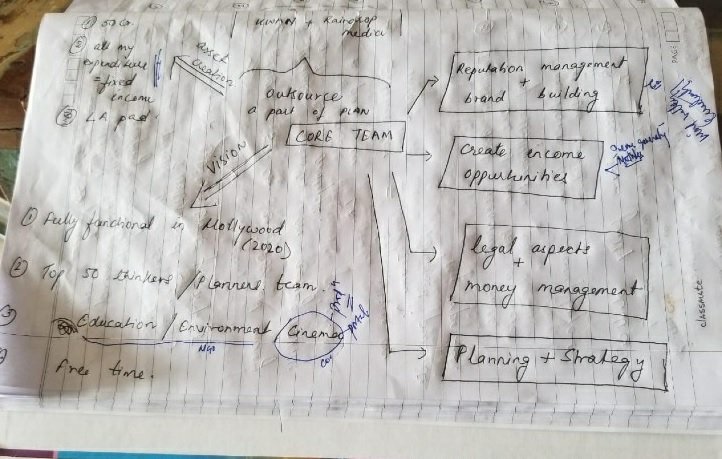 ④ 50 Cr.
⑤ all my
expenditure
= fixed
income
⑥ LA pad.
KWAN + Raindrop
media
asset
creation
outsource
a part of PLAN
CORE TEAM
Vision
① Fully functional in Hollywood
(2020)
② Top 50 thinkers / Planners team
Education / Environment / Cinema
NGO
free time.
Reputation management
+
brand building
Create income
oppurtunities
legal aspects
+
money management
Planning + Strategy
PAGE
classmate